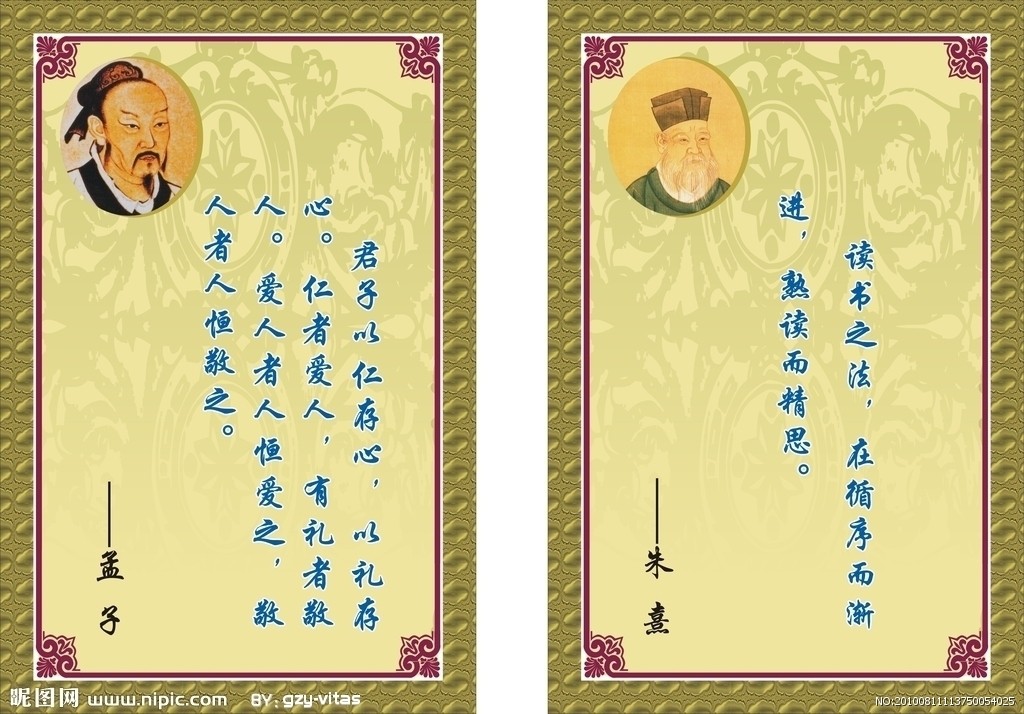 君子以仁存心，以礼存
心。仁者爱人，有礼者敬
人。爱人者人恒爱之，敬
人者人恒敬之。
——孟子
读书之法，在循序而渐
进，熟读而精思。
——朱熹
昵图网 www.nipic.com BY: gzy-vitas
NO:20100811113750054025